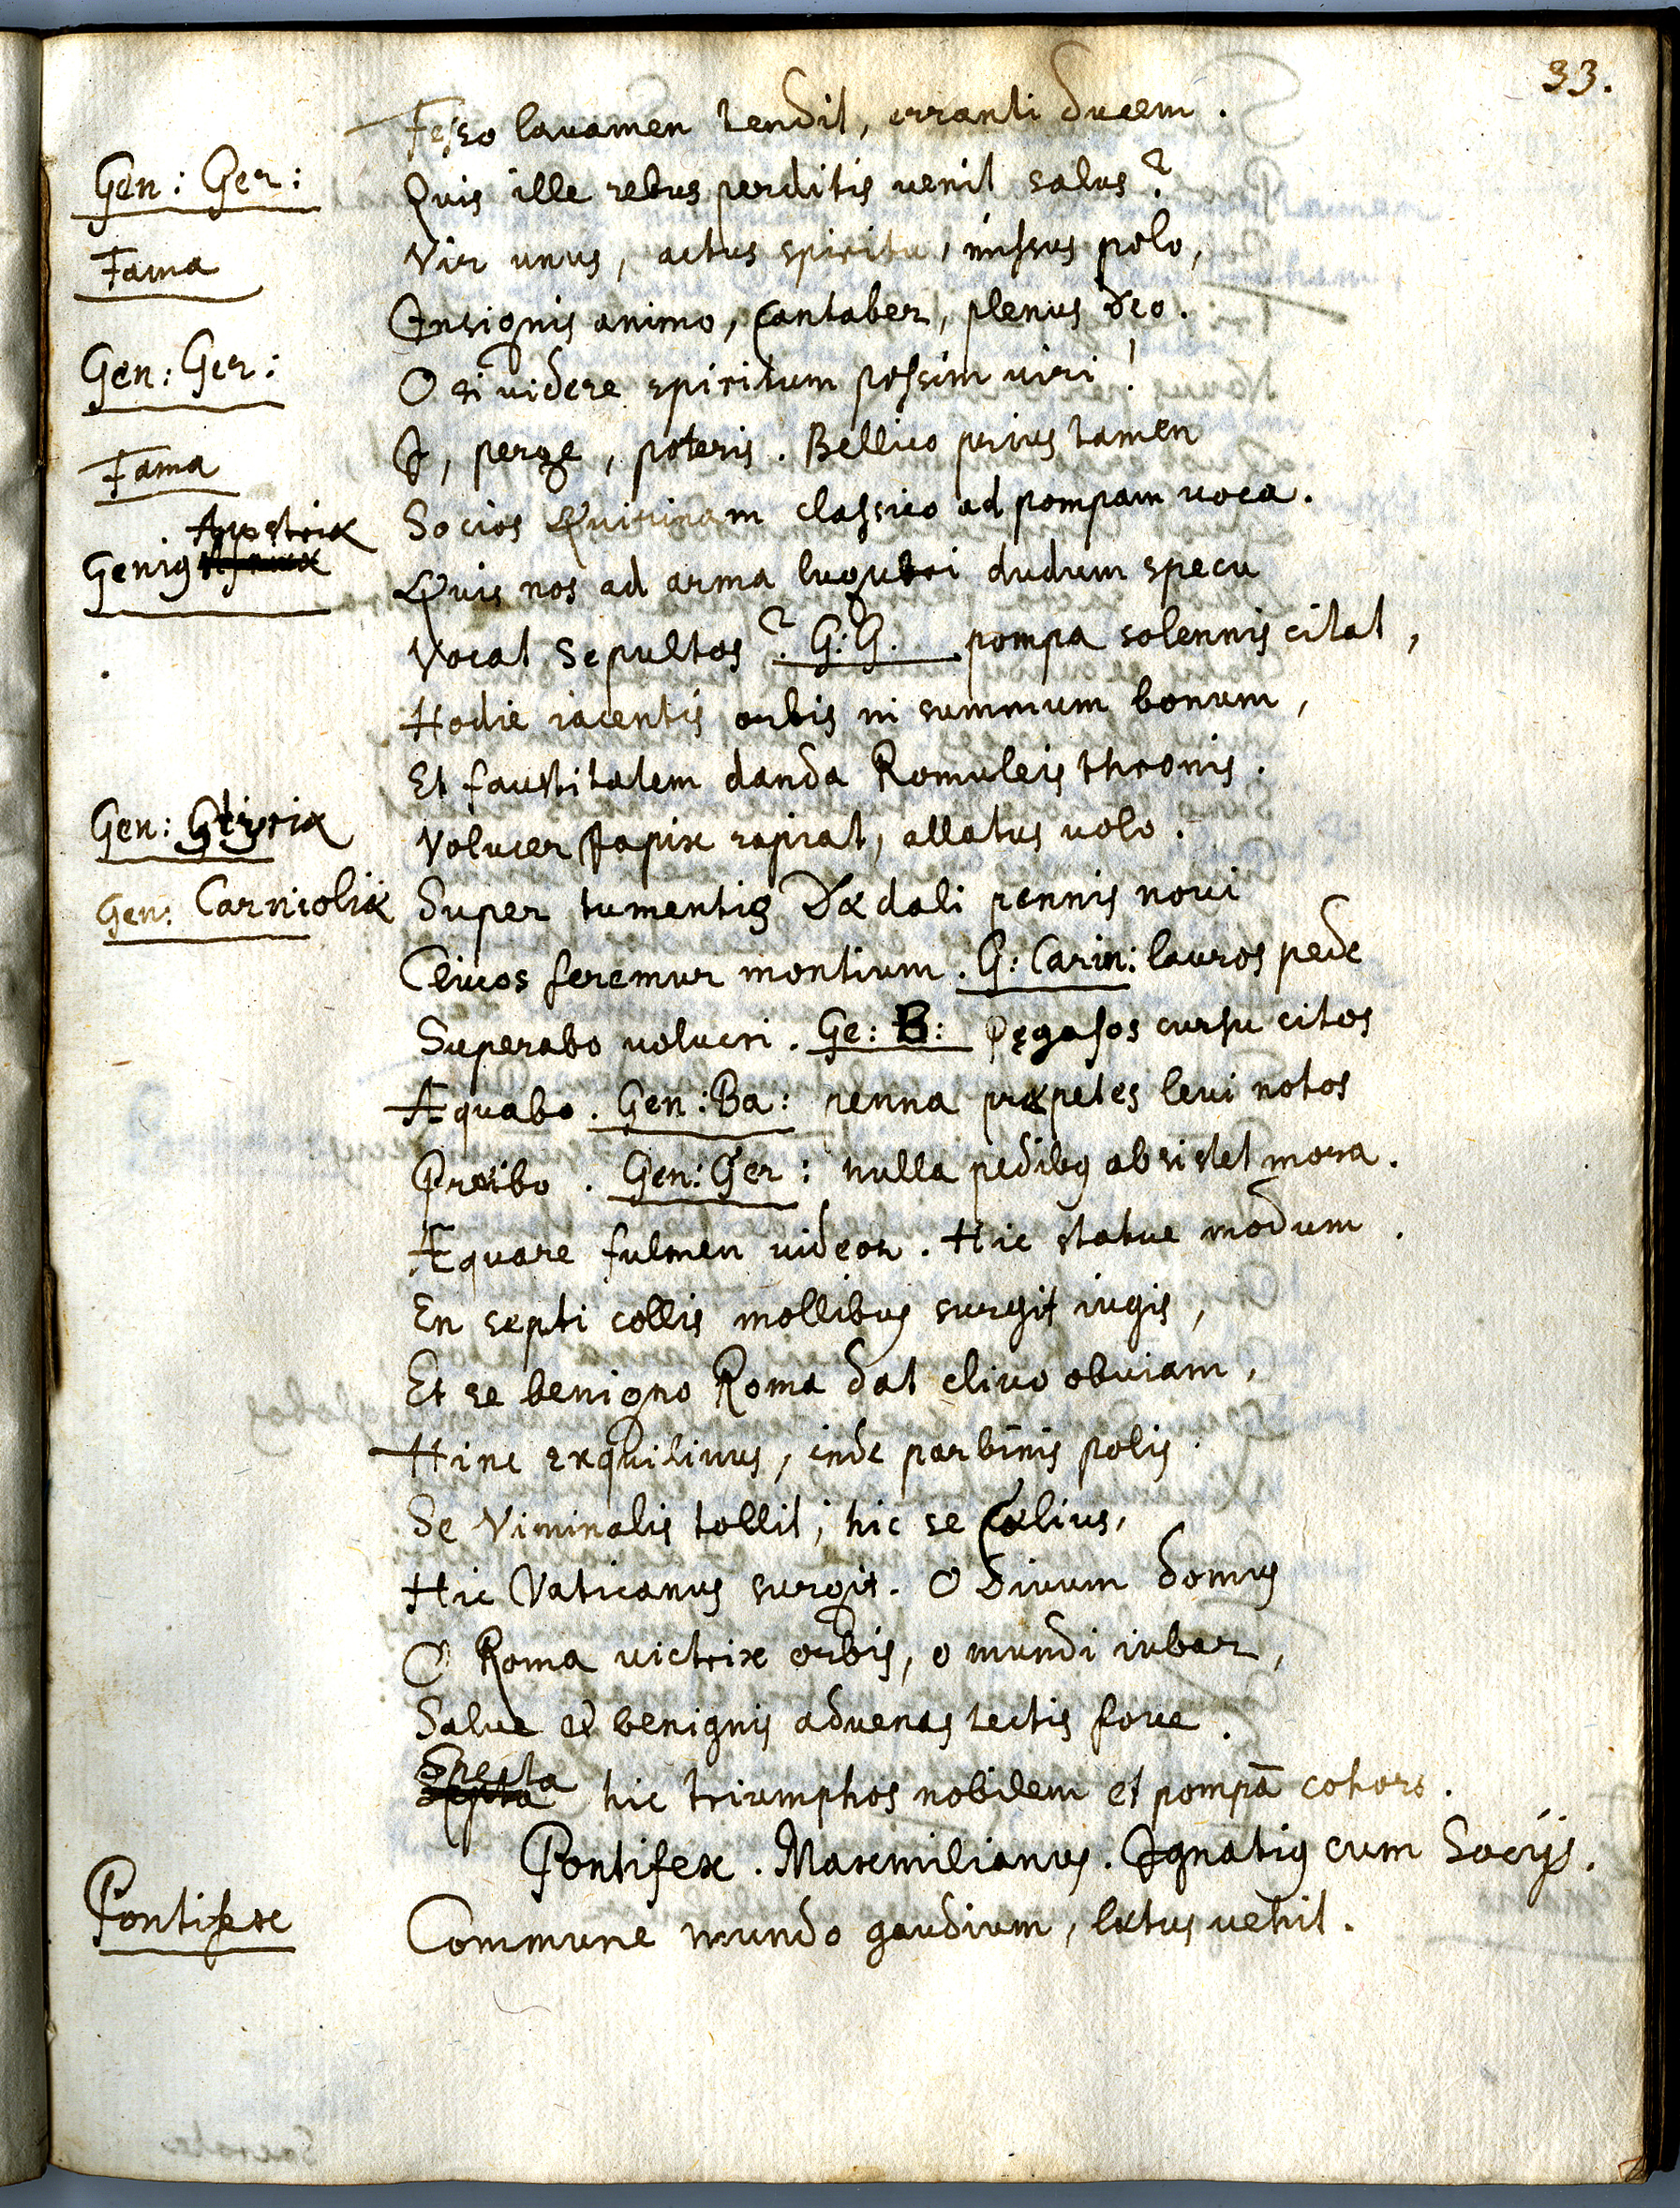 33.
Fesso lauamen tendit, erranti ducem.
Gen: Ger: Quis ille rebus perditis uenit salus?
Fama Vir unus, actus spiritu, missus polo,
Insignis animo, Cantaber, plenus Deo.
Gen: Ger: O si uidere spiritum possim uiri!
Fama I, perge, poteris. Bellico prius tamen
Socios Quirinam classico ad pompam uoca.
Austriæ
Genius Quis nos ad arma lugubri dudum specu
Vocat sepultos? G: G. pompa solennis citat,
Hodie iacentis orbis in summum bonum,
Et faustitatem danda Romuleis thronis.
Gen: Styriæ Volucer Iapix rapiat, allatus uolo.
Gen: Carnioliæ Super tumentis Dædali pennis noui
Cliuos feremur montium. G: Carin: lauros pede
Superabo uolucri. Ge: B: Pęgasos cursu citos
Æquabo. Gen: Ba: penna præpetes leui notos
Preibo. Gen: Ger: nulla pedibus absistet mora.
Æquare fulmen uideor. Hic statue modum.
En septi collis mollibus surgit iugis,
Et se benigno Roma dat cliuo obuiam,
Hinc exquilinus, inde par binis polis
Se Viminalis tollit; hic se Cælius,
Hic Vaticanus surgit. O Diuum domus
O Roma uictrix orbis, o mundi iubar,
Salue et benignis aduenas tectis foue.
Specta
hic triumphos nobilem et pompā cohors.
Pontifex. Maximilianus. Ignatius cum Socijs.
Pontifex Commune mundo gaudium, lætus uehit.